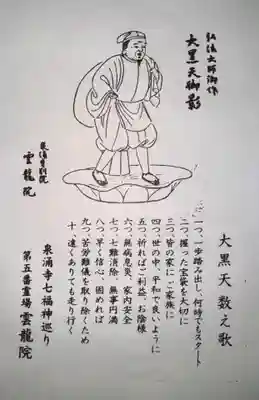 弘法大師御作
大黒天御影
泉涌寺別院
雲龍院
大黒天数え歌
一つ、一歩踏み出し、何時でもスタート
二つ、握った宝袋を大切に
三つ、皆の家に ご家族に
四つ、世の中、平和で良いように
五つ、祈ればご利益、お陰様
六つ、無病息災、家内安全
七つ、七難消除、無事円満
八つ、早く信心、固めれば
九つ、苦労難儀を取り除くため
十、遠くありても走り行く
泉涌寺七福神巡り
第五番霊場 雲龍院